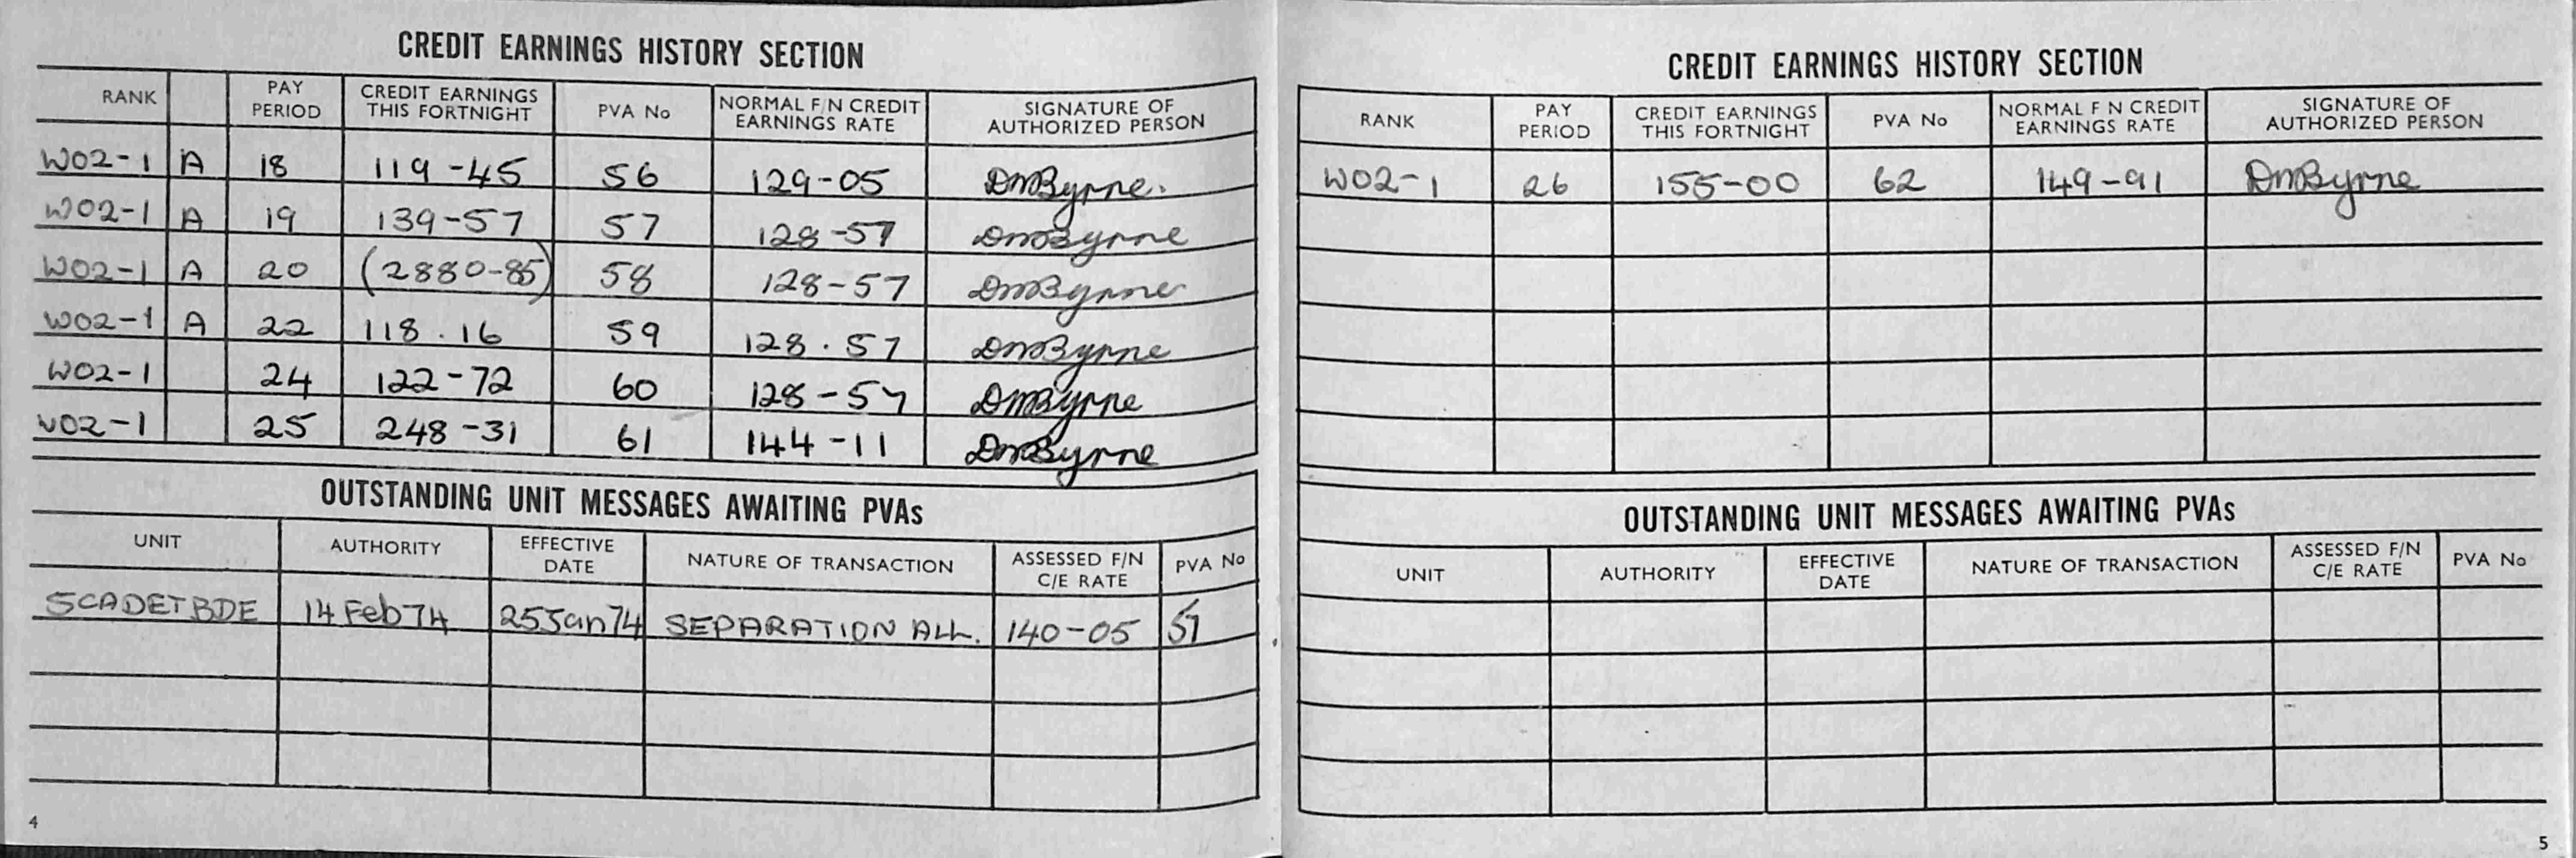 CREDIT EARNINGS HISTORY SECTION
RANK PAY PERIOD CREDIT EARNINGS THIS FORTNIGHT PVA No NORMAL F/N CREDIT EARNINGS RATE SIGNATURE OF AUTHORIZED PERSON
WO2-1 A 18 119-45 56 129-05 DMByrne.
WO2-1 A 19 139-57 57 128-57 DMByrne
WO2-1 A 20 (2880-85) 58 128-57 DMByrne
WO2-1 A 22 118.16 59 128.57 DMByrne
WO2-1 24 122-72 60 128-57 DMByrne
WO2-1 25 248-31 61 144-11 DMByrne
OUTSTANDING UNIT MESSAGES AWAITING PVAs
UNIT AUTHORITY EFFECTIVE DATE NATURE OF TRANSACTION ASSESSED F/N C/E RATE PVA No
5CADETBDE 14Feb74 25Jan74 SEPARATION ALL. 140-05
4
CREDIT EARNINGS HISTORY SECTION
RANK PAY PERIOD CREDIT EARNINGS THIS FORTNIGHT PVA No NORMAL F N CREDIT EARNINGS RATE SIGNATURE OF AUTHORIZED PERSON
WO2-1 26 155-00 62 149-91 DMByrne
OUTSTANDING UNIT MESSAGES AWAITING PVAs
UNIT AUTHORITY EFFECTIVE DATE NATURE OF TRANSACTION ASSESSED F/N C/E RATE PVA No
5